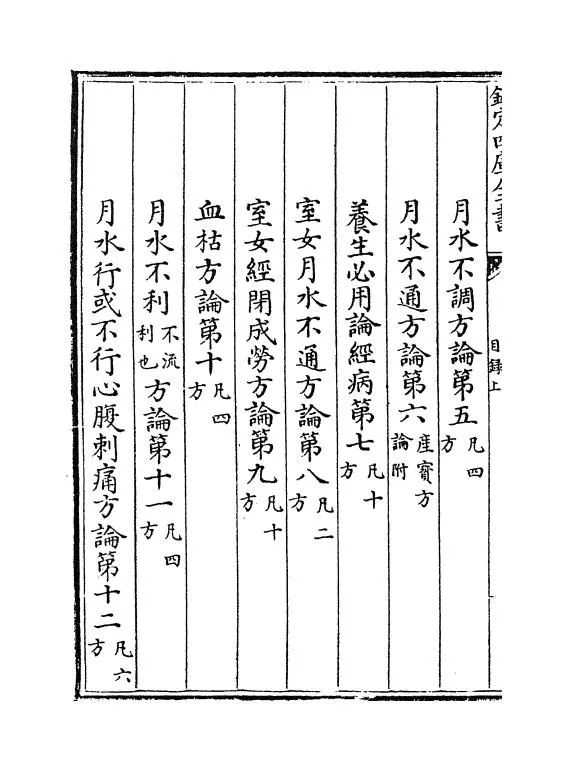 欽定四庫全書
目錄上
月水不調方論第五凡四方
月水不通方論第六產寳方論附
養生必用論經病第七凡十方
室女月水不通方論第八凡二方
室女經閉成勞方論第九凡十方
血枯方論第十凡四方
月水不利不流利也方論第十一凡四方
月水行或不行心腹刺痛方論第十二凡六方